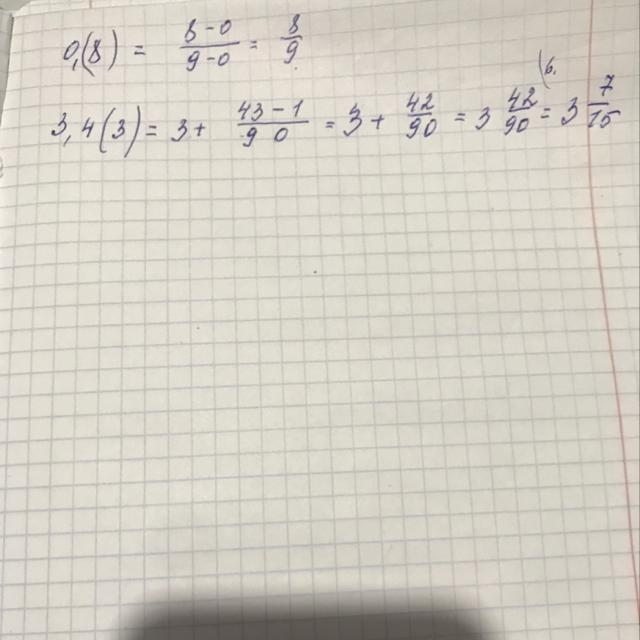 0,(8) = 8-0/9-0 = 8/9
3,4(3) = 3+ 43-1/90 = 3+ 42/90 = 3 42/90 (6. = 3 7/15